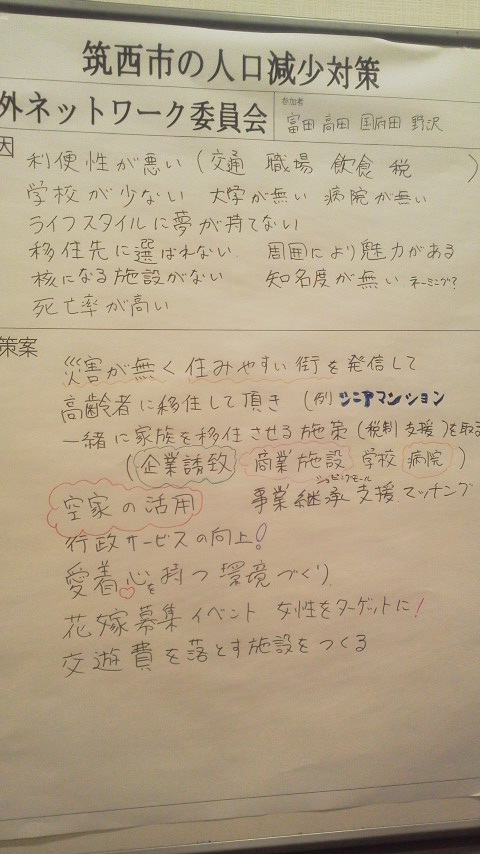 筑西市の人口減少対策
外ネットワーク委員会
参加者
富田 高田 国府田 野沢
因
利便性が悪い(交通 職場 飲食 税 )
学校が少ない 大学が無い 病院が無い
ライフスタイルに夢が持てない
移住先に選ばれない 周囲により魅力がある
核になる施設がない 知名度が無い ネーミング?
死亡率が高い
策案
災害が無く住みやすい街を発信して
高齢者に移住して頂き (例)シニアマンション
一緒に家族を移住させる施策(税制支援)を取る
(企業誘致 商業施設 学校 病院)
ショッピングモール
空家の活用 事業継承支援マッチング
行政サービスの向上!
愛着心を持つ環境づくり
花嫁募集イベント 女性をターゲットに!
交遊費を落とす施設をつくる